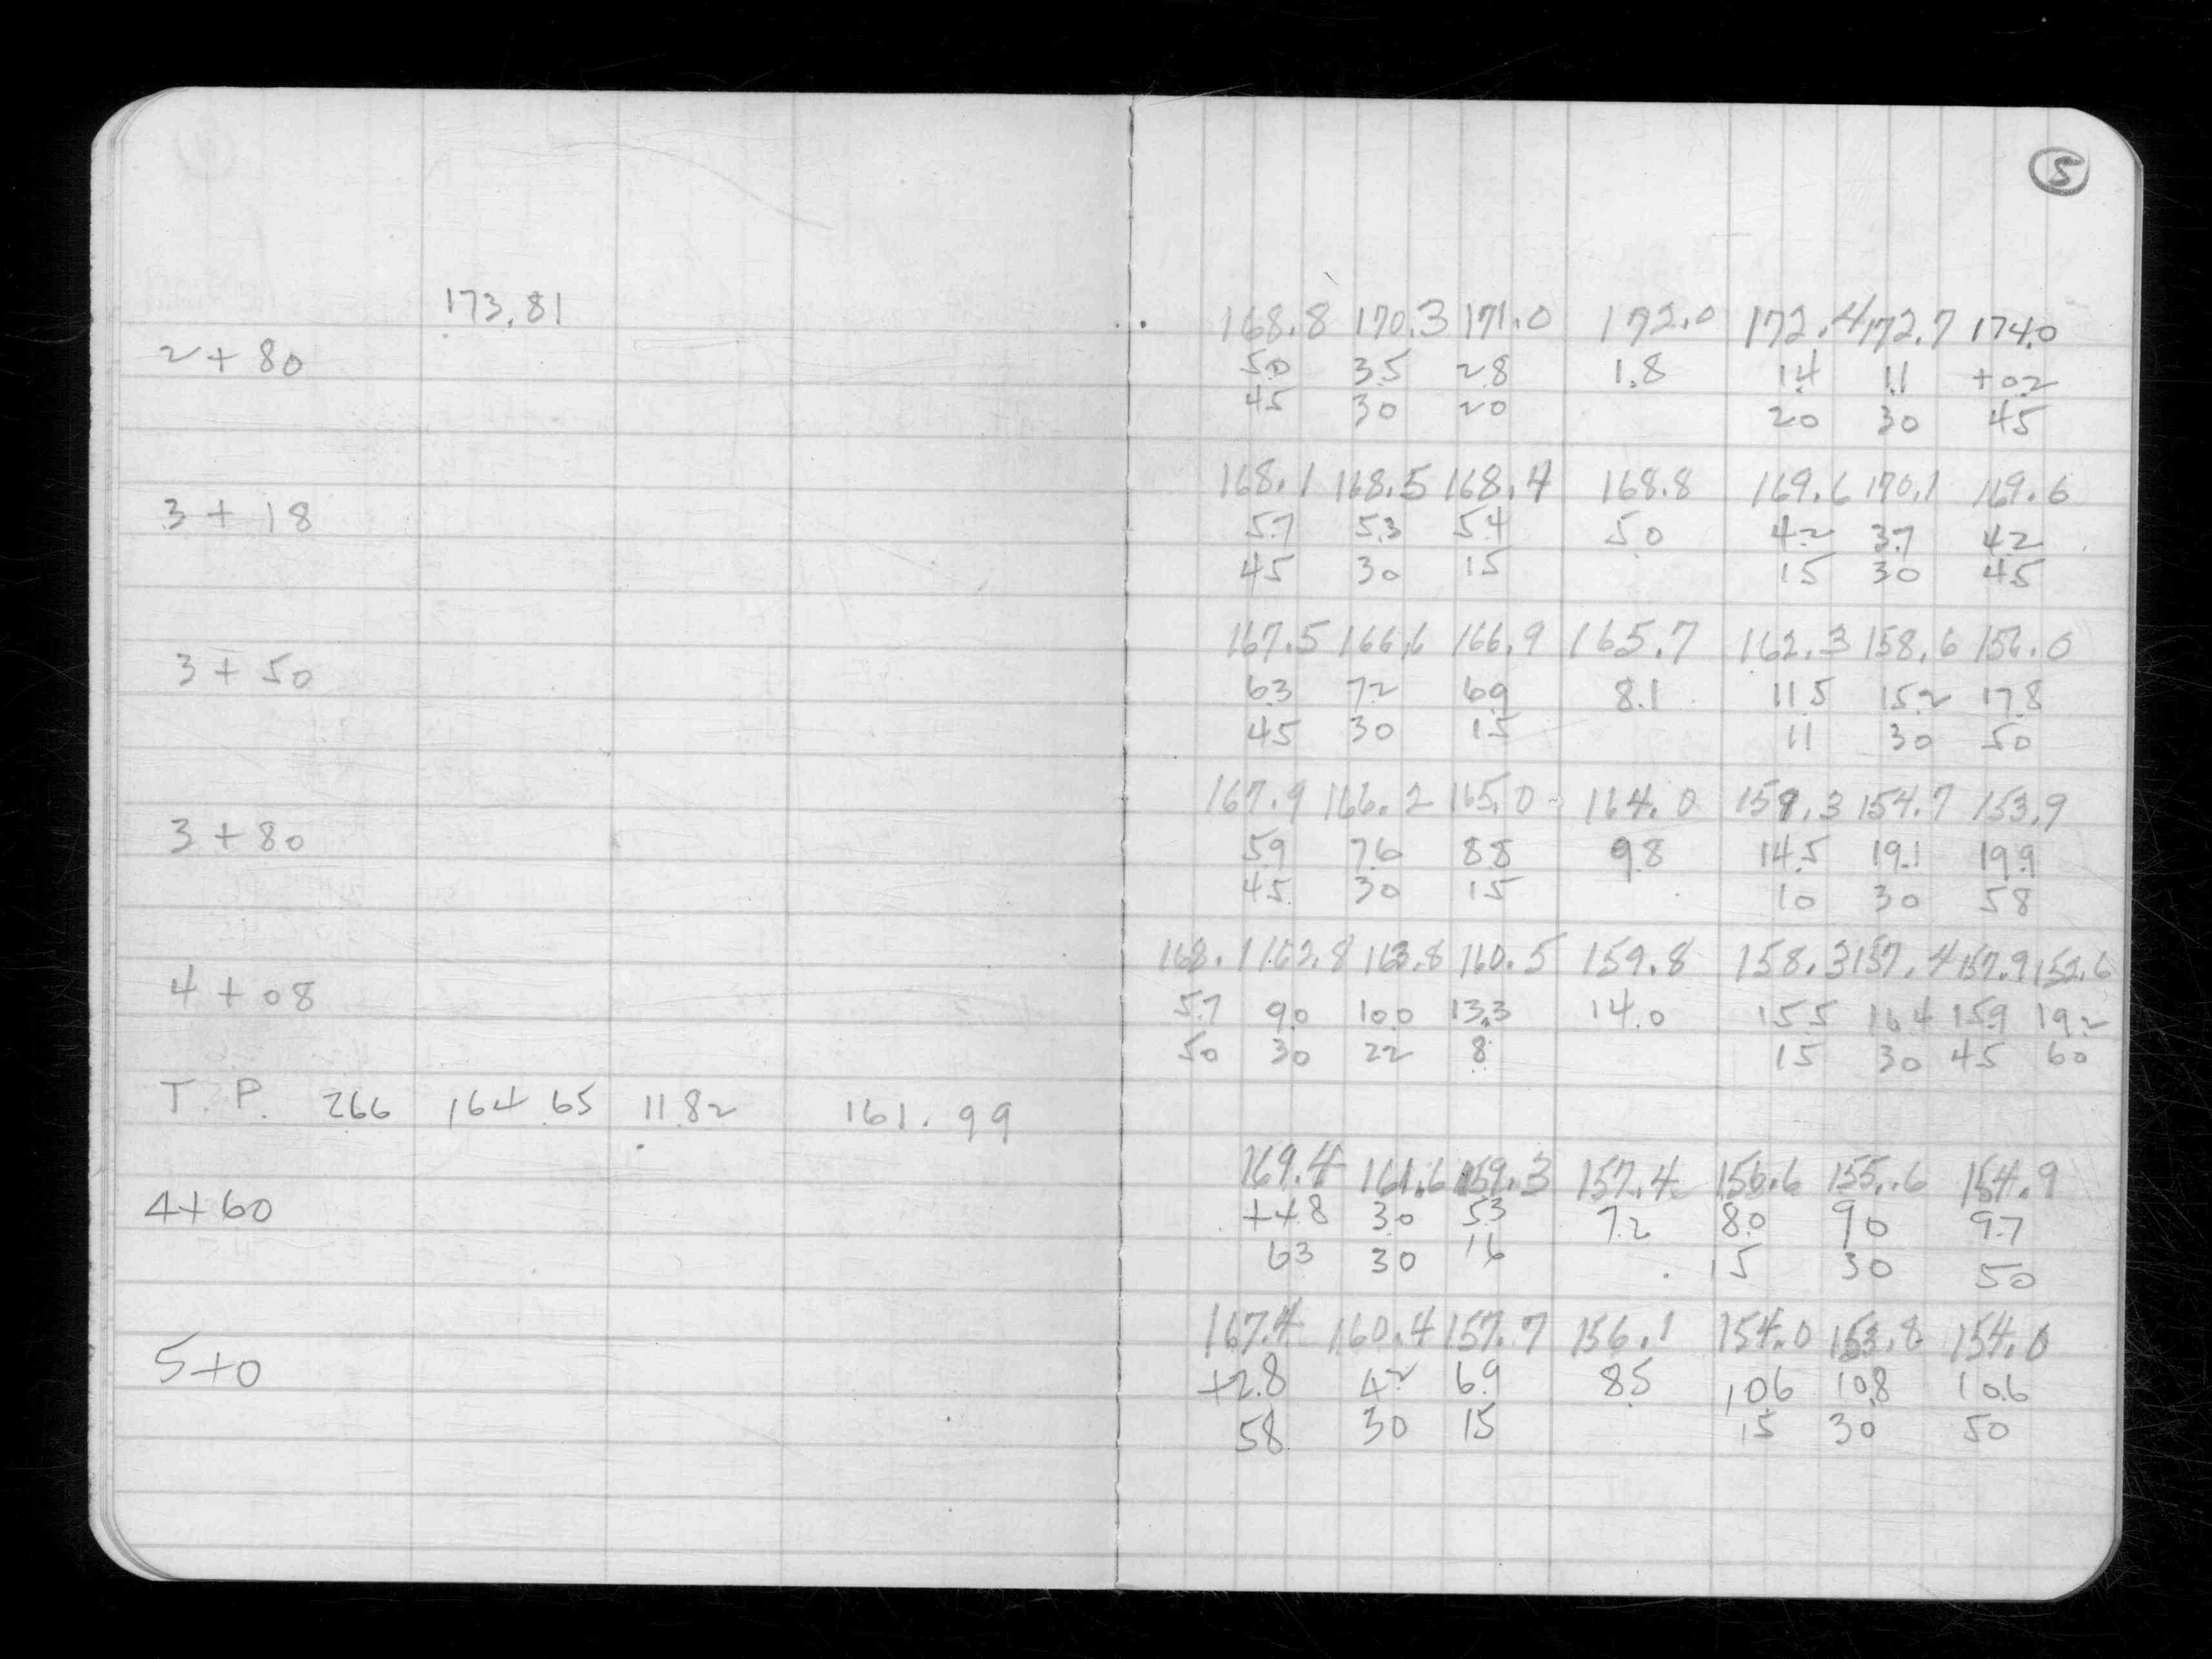 5
173.81
168.8 170.3 171.0 172.0 172.4 172.7 174.0
2+80
5.0 3.5 2.8 1.8 1.4 1.1 +0.2
45 30 20 20 30 45
168.1 168.5 168.4 168.8 169.6 170.1 169.6
3+18
5.7 5.3 5.4 5.0 4.2 3.7 4.2
45 30 15 15 30 45
167.5 166.6 166.9 165.7 162.3 158.6 156.0
3+50
6.3 7.2 6.9 8.1 11.5 15.2 17.8
45 30 15 11 30 50
167.9 166.2 165.0 164.0 159.3 154.7 153.9
3+80
5.9 7.6 8.8 9.8 14.5 19.1 19.9
45 30 15 10 30 58
168.1 162.8 163.8 160.5 159.8 158.3 157.4 157.9 152.6
4+08
5.7 9.0 10.0 13.3 14.0 15.5 16.4 15.9 19.2
50 30 22 8 15 30 45 60
T.P. 2.66 164.65 11.82 161.99
169.4 161.6 159.3 157.4 156.6 155.6 154.9
4+60
++.8 3.0 5.3 7.2 8.0 9.0 9.7
63 30 16 15 30 50
167.4 160.4 157.7 156.1 154.0 153.8 154.0
5+0
+2.8 4.2 6.9 8.5 10.6 10.8 10.6
58 30 15 15 30 50